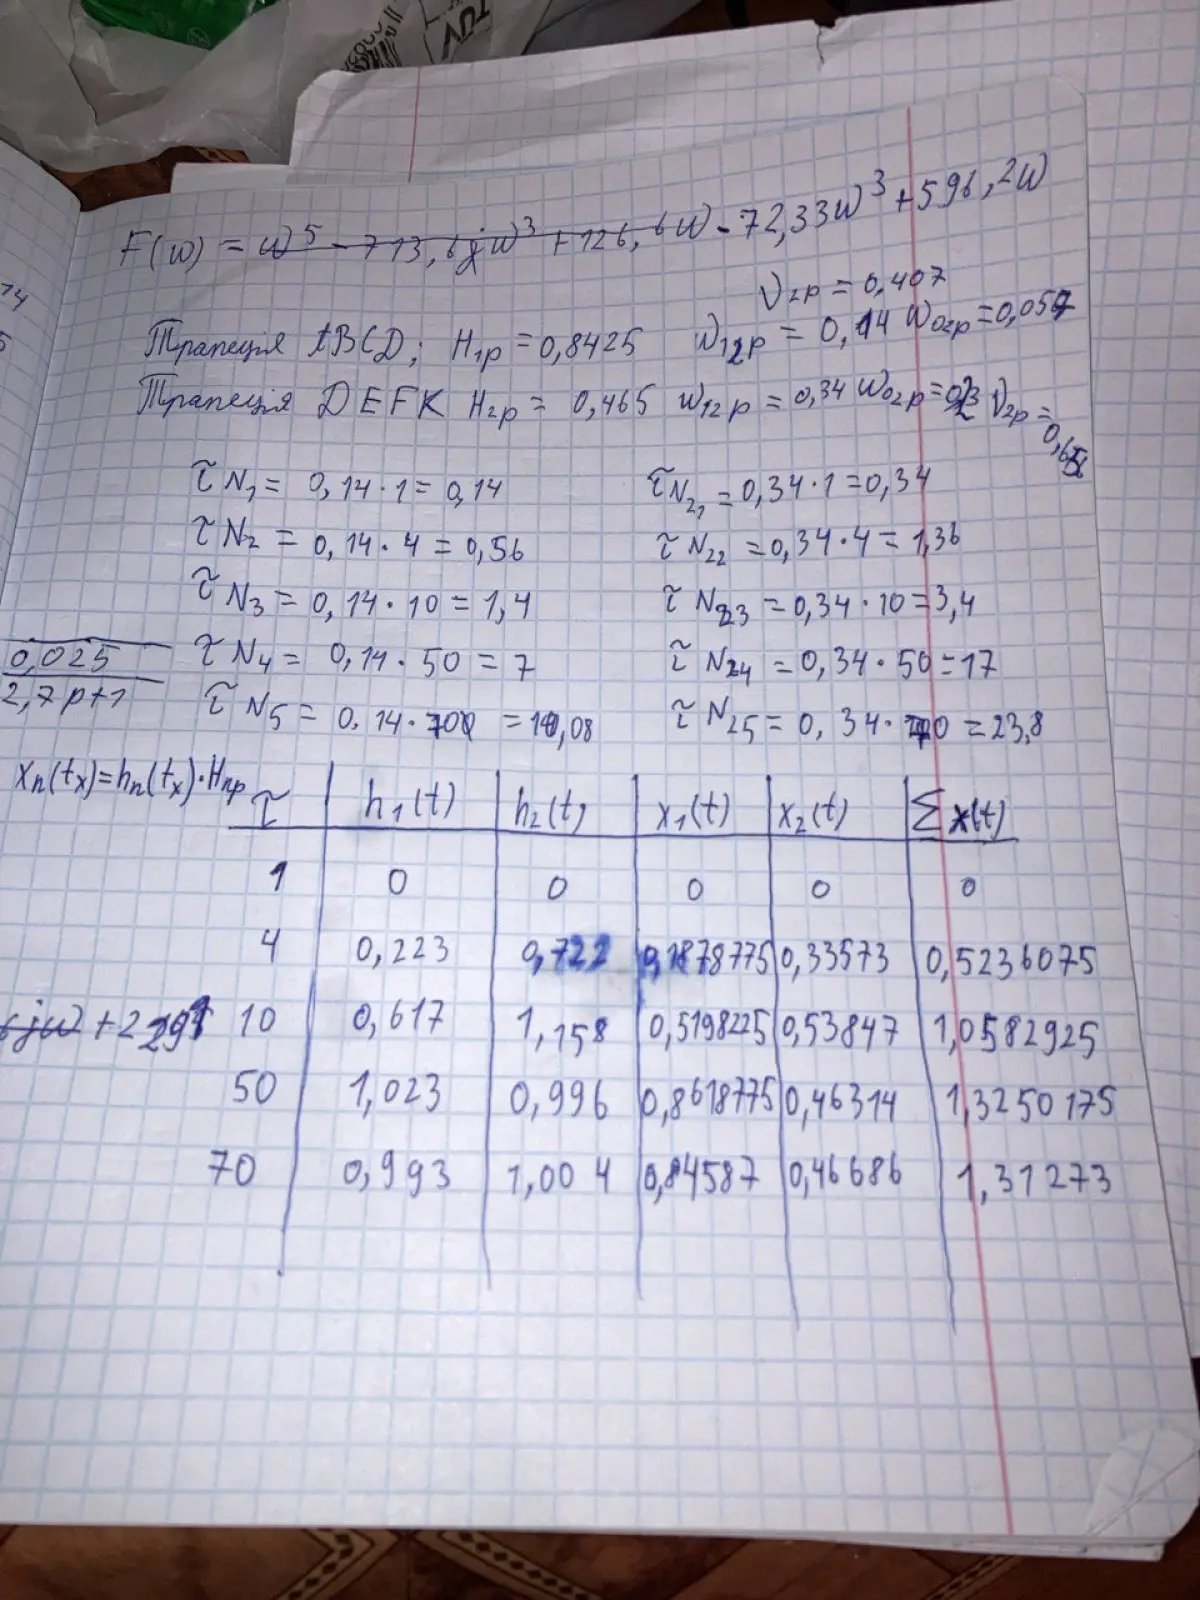 F(w) = w⁵ - 713,6jw³ + 126,6w - 72,33w³ + 596,2w
ν₂р = 0,407
Трапеція ABCD; H₁р = 0,8425 w₁₂р = 0,14 w₀₂р = 0,057
Трапеція DEFK H₂р = 0,465 w₁₂р = 0,34 w₀₂р = ν₂р = 0,6
τN₁ = 0,14·1 = 0,14 τN₂₁ = 0,34·1 = 0,34
τN₂ = 0,14·4 = 0,56 τN₂₂ = 0,34·4 = 1,36
τN₃ = 0,14·10 = 1,4 τN₂₃ = 0,34·10 = 3,4
0,025 τN₄ = 0,14·50 = 7 τN₂₄ = 0,34·50 = 17
2,7p+1 τN₅ = 0,14· = ,08 τN₂₅ = 0,34·70 = 23,8
xₙ(tₓ)=hₙ(tₓ)·Hₙр
τ h₁(t) h₂(t) x₁(t) x₂(t) Σx(t)
1 0 0 0 0 0
4 0,223 0,722 0,1878775 0,33573 0,5236075
jw + 2291 10 0,617 1,158 0,5198225 0,53847 1,0582925
50 1,023 0,996 0,8618775 0,46314 1,3250175
70 0,993 1,004 0,84587 0,46686 1,31273